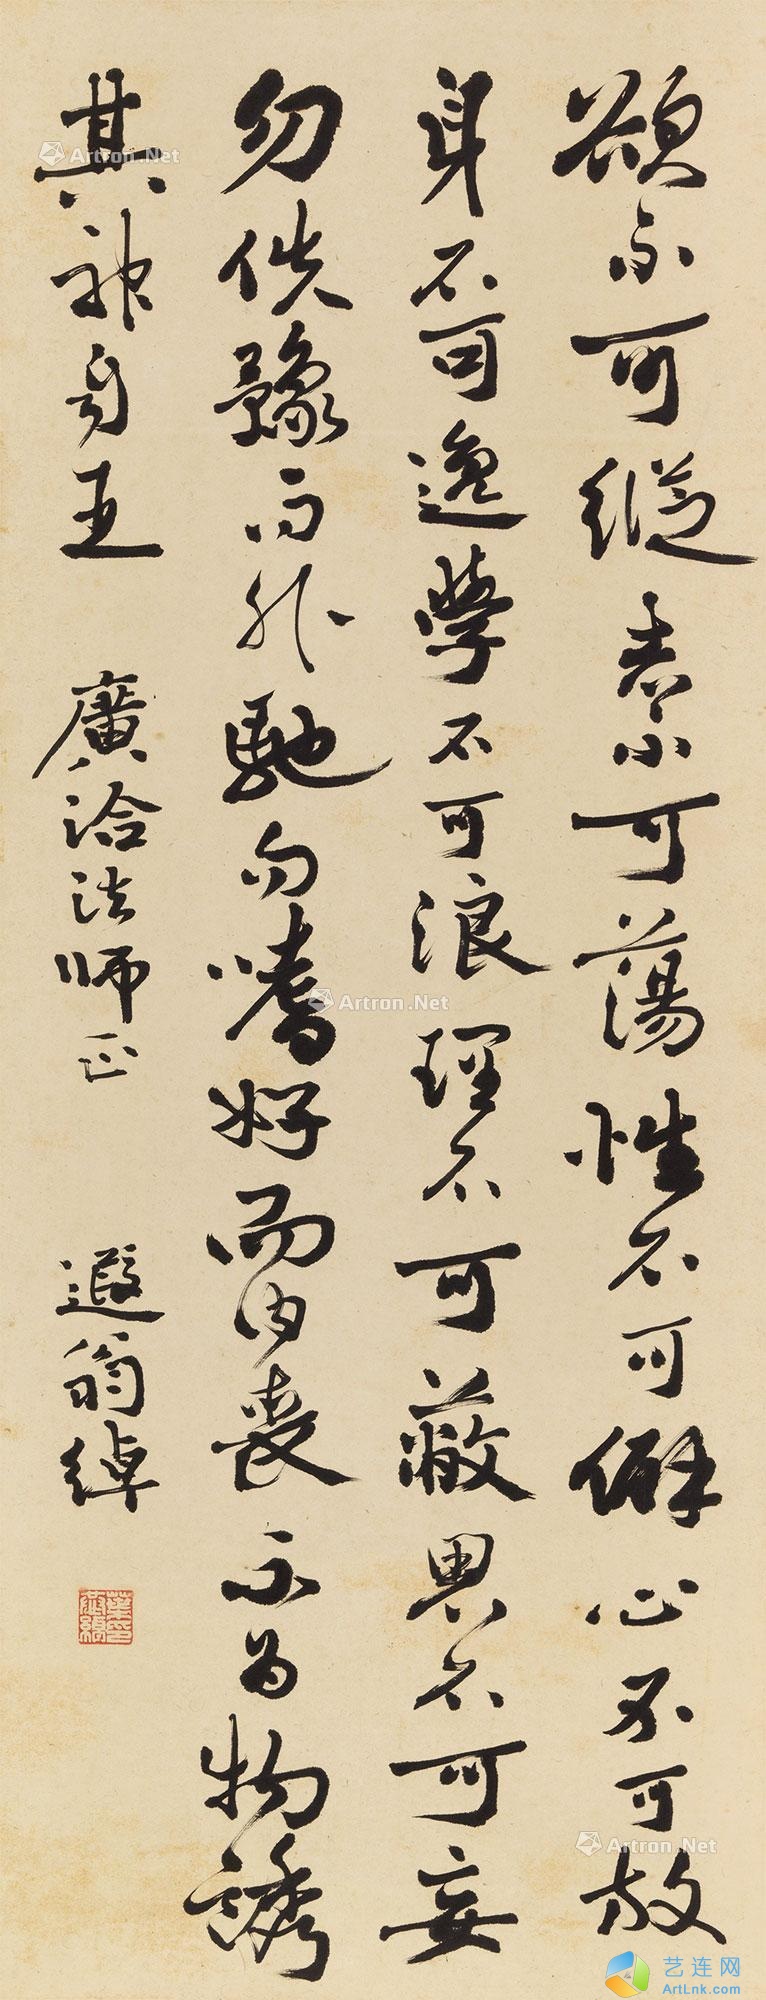 欲不可縱志不可蕩性不可僻心不可放
身不可逸學不可浪理不可蔽思不可妄
勿佚豫而外馳勿嗜好而內喪不為物誘
其神自王
廣洽法師正
遐翁綽
葉印恭綽
Artron.Net
Artron.Net
Artron.Net
Artron.Net
艺连网
ArtLnk.com